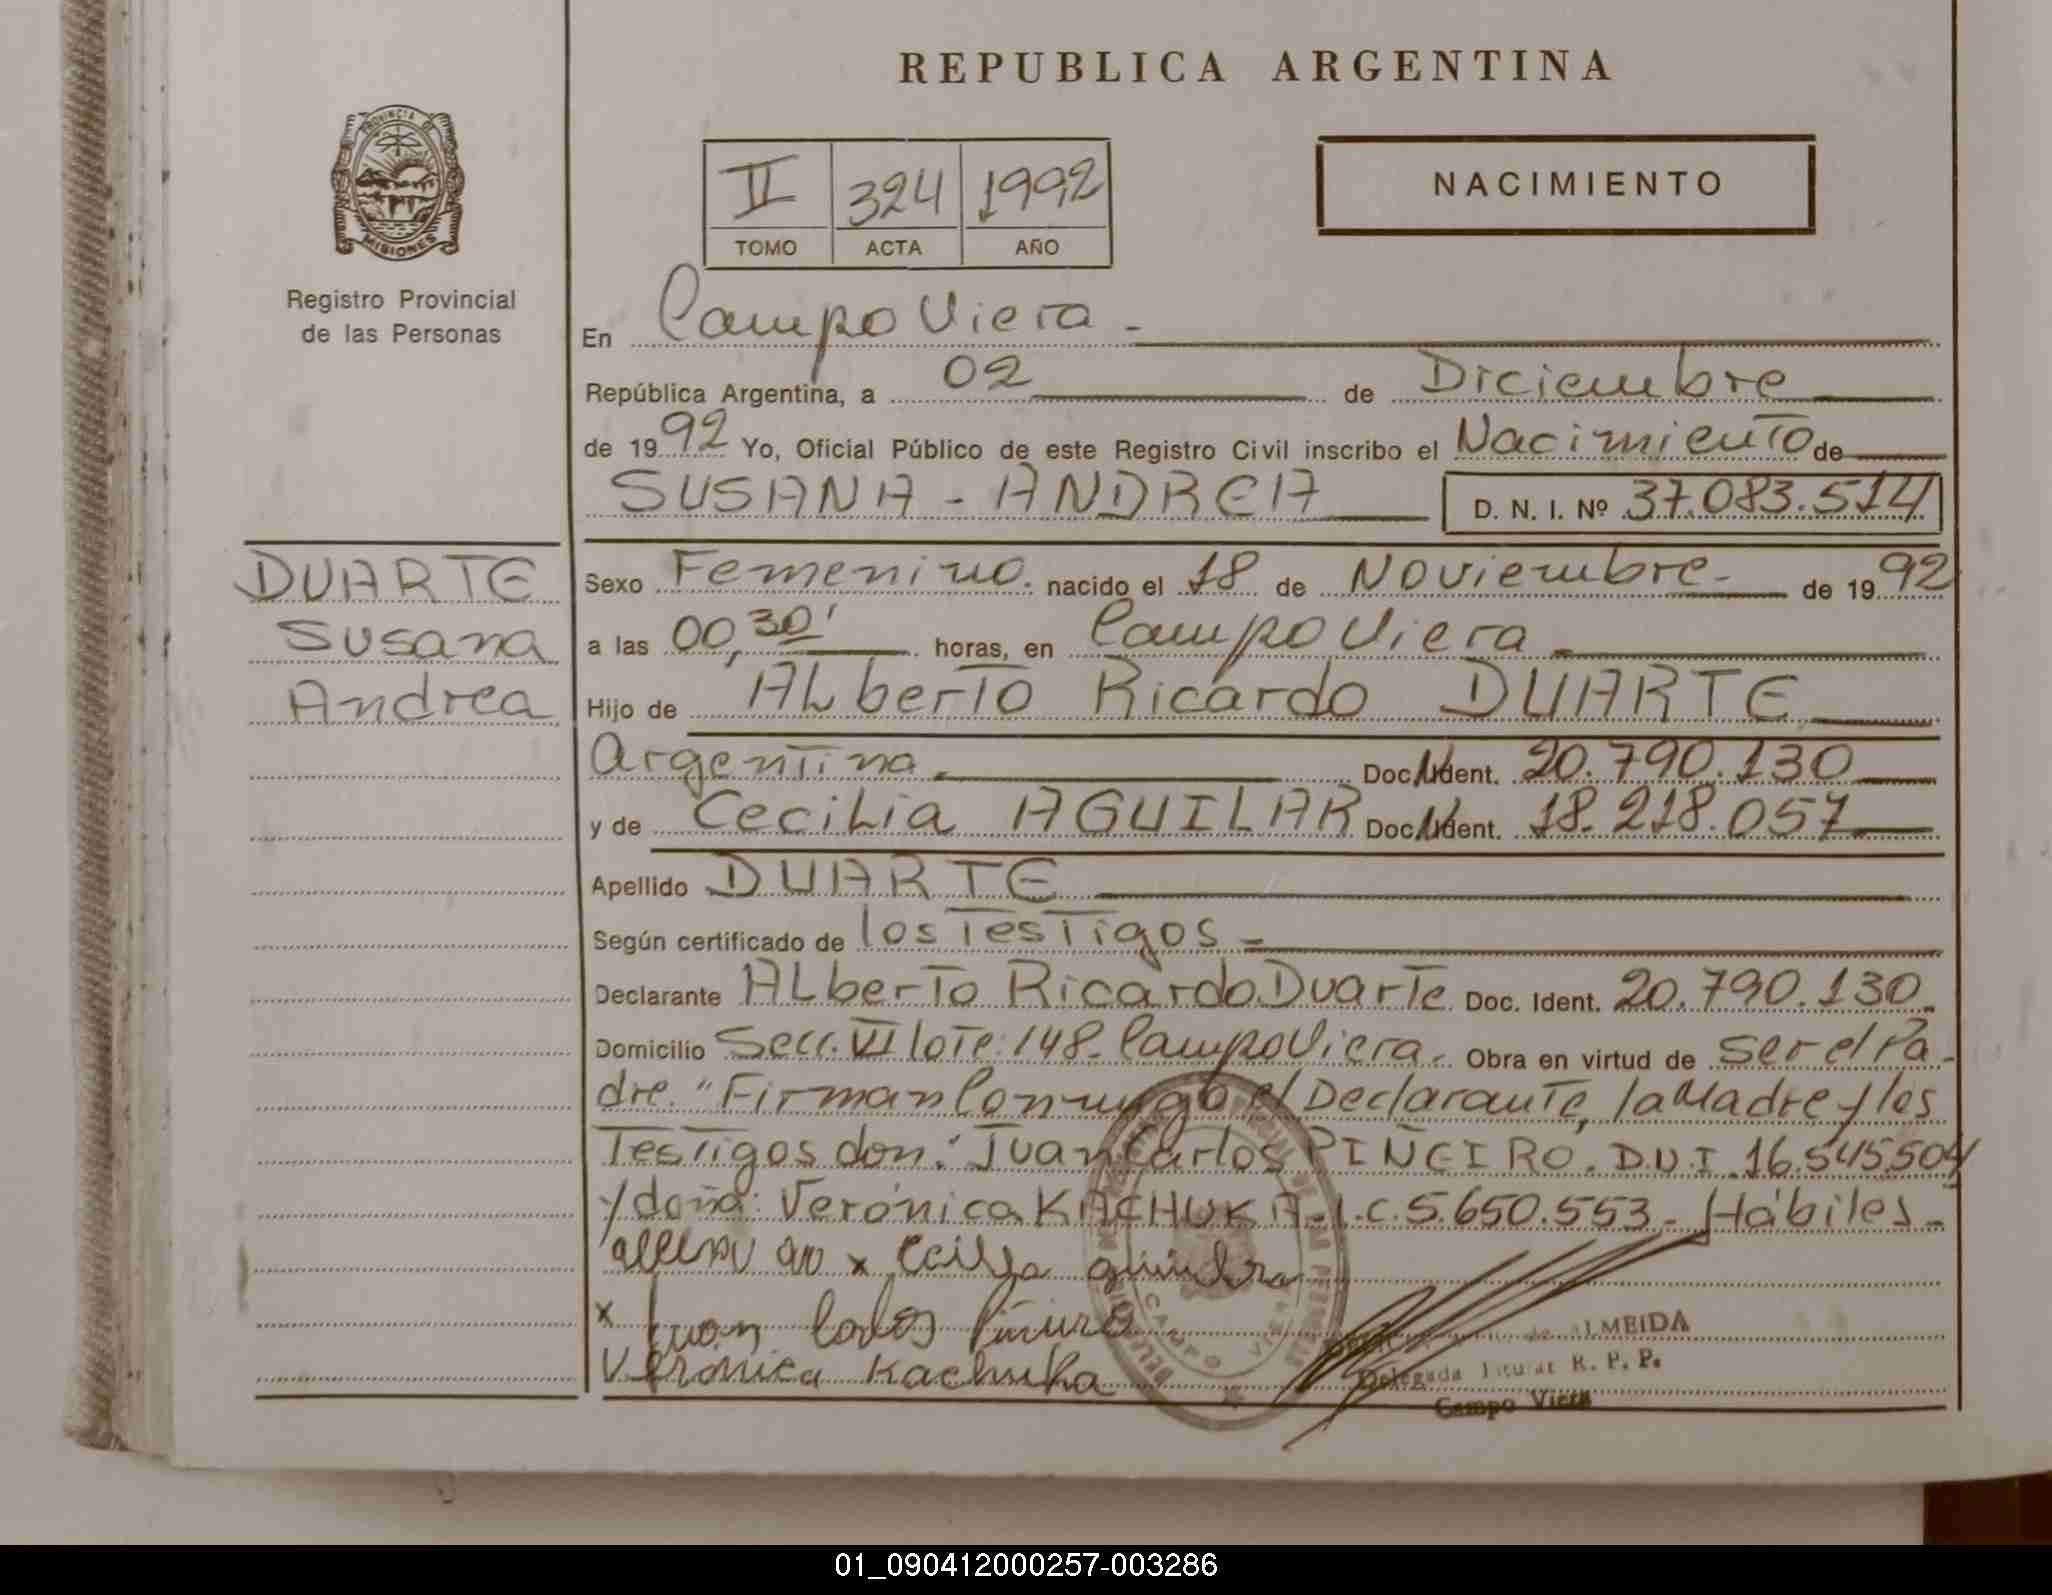 REPUBLICA ARGENTINA
PROVINCIA DE MISIONES
Registro Provincial
de las Personas
II 324 1992
TOMO ACTA AÑO
NACIMIENTO
En Campo Viera -
República Argentina, a 02 de Diciembre
de 1992 Yo, Oficial Público de este Registro Civil inscribo el Nacimiento de
SUSANA - ANDREA D. N. I. Nº 37.083.514
DUARTE
Susana
Andrea
Sexo Femenino. nacido el 18 de Noviembre- de 1992
a las 00,30' horas, en Campo Viera
Hijo de ALberTo Ricardo DUARTE
Argentina Doc. Ident. 20.790.130
y de CeciLia AGUILAR Doc. Ident. 18.218.057
Apellido DUARTE
Según certificado de los Testigos -
Declarante ALberTo Ricardo Duarte Doc. Ident. 20.790.130.
Domicilio Secc. VI lote: 148- Campo Viera. Obra en virtud de ser el Pa-
dre. "Firman Conmigo el Declarante, la Madre y los
Testigos don: Juan Carlos PIÑEIRO. D.N.I. 16.545.504
y doña: Verónica KACHUKA - I.C. 5.650.553 - Hábiles -
x
x Juan Carlos Piñeiro
Verónica Kachuka
ALMEIDA
Delegada Titular R. P. P.
Campo Viera
01_090412000257-003286